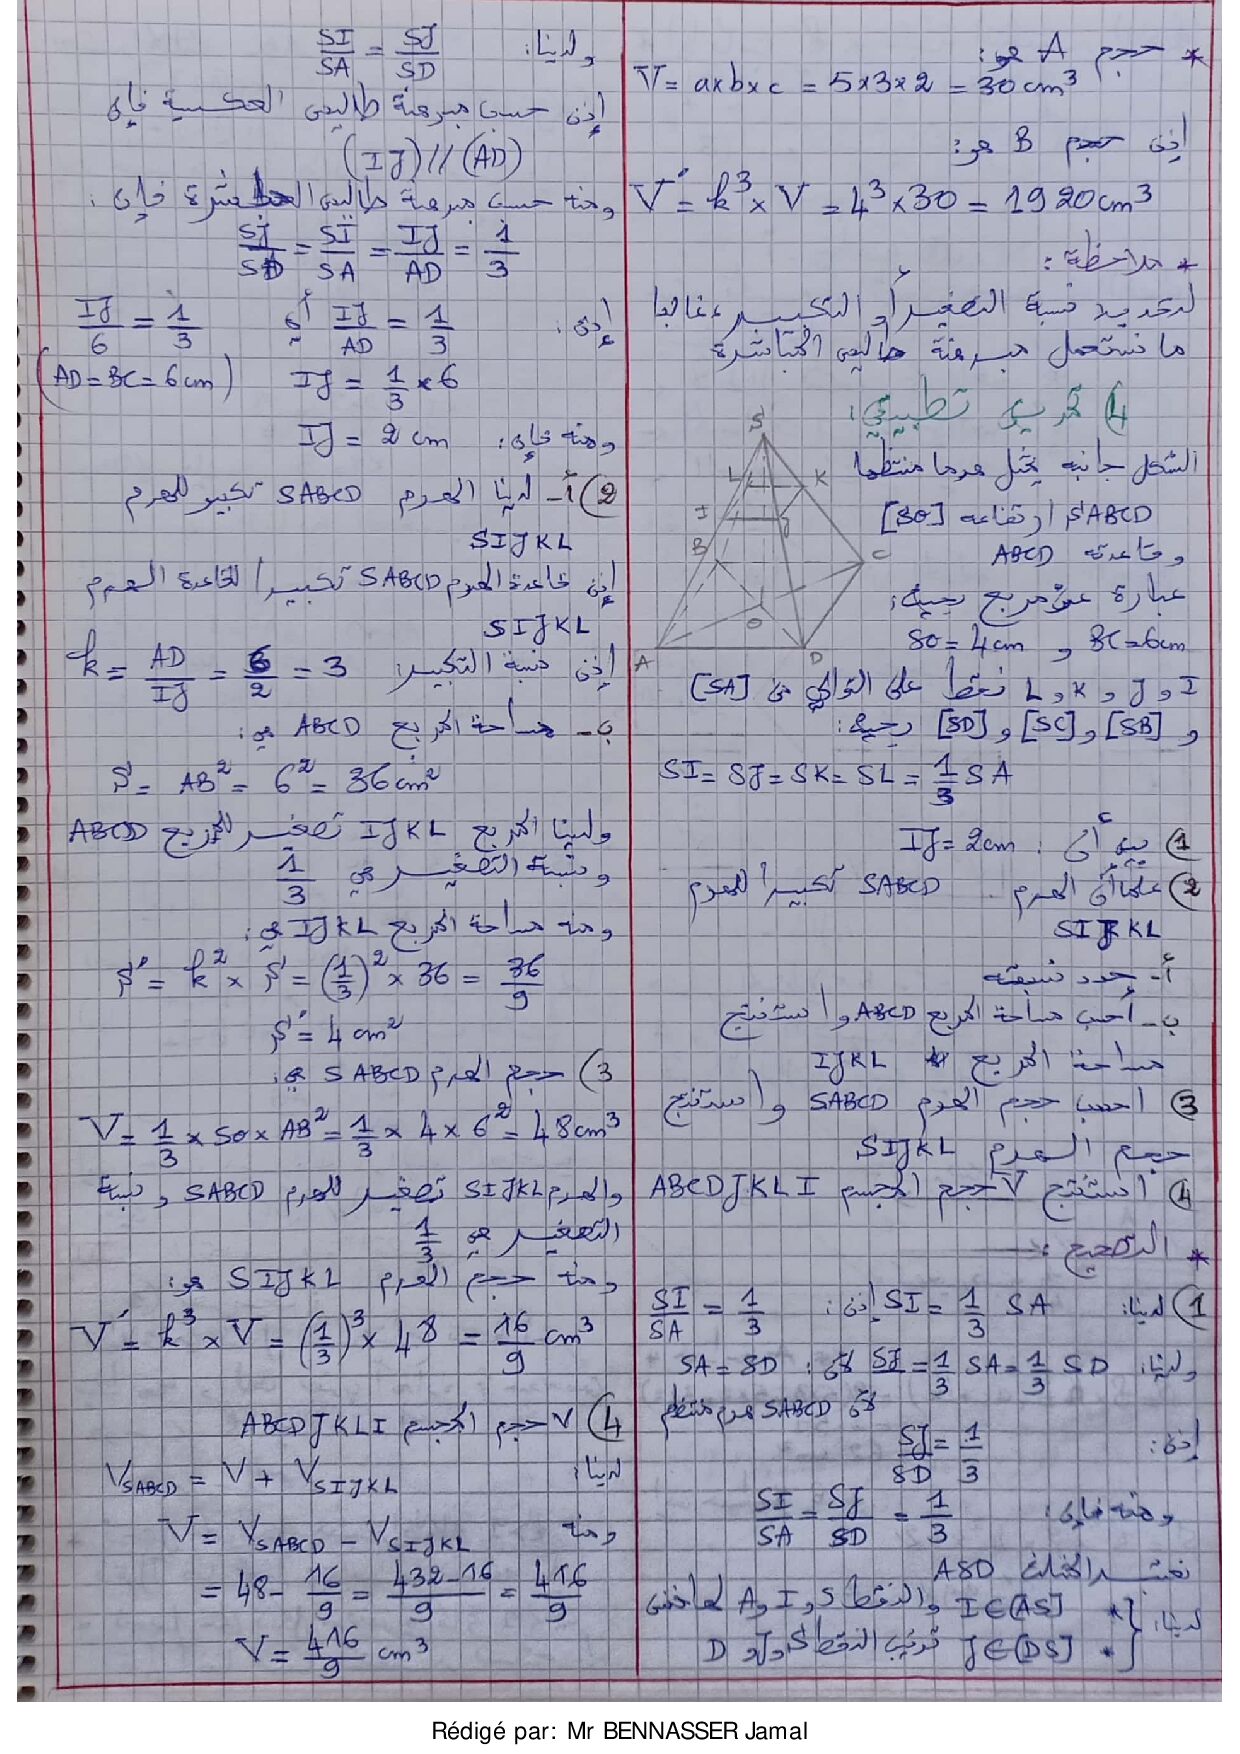 * حجم A هو:
V = a×b×c = 5×3×2 = 30 cm³
إذن حجم B هو:
V' = k³ × V = 4³ × 30 = 1920 cm³
* ملاحظة:
لتحديد نسبة التصغير أو التكبير، غالبا
ما نستعمل مبرهنة طاليس المباشرة
4) تمرين تطبيقي:
الشكل جانبه يمثل هرما منتظما
SABCD ارتفاعه [SO]
وقاعدته ABCD
عبارة عن مربع بحيث:
SO = 4cm و BC = 6cm
I و J و K و L نقط على التوالي من [SA]
و [SD] و [SC] و [SB] بحيث:
SI = SJ = SK = SL = 1/3 SA
S
L
K
I
J
B
C
O
A
D
① بين أن: IJ = 2cm
② علما أن الهرم SABCD تكبيرا للهرم
SIJKL
أ- حدد نسبته
ب- أحسب مساحة المربع ABCD واستنتج
مساحة المربع IJKL
③ احسب حجم الهرم SABCD واستنتج
حجم الهرم SIJKL
④ استنتج V حجم المجسم ABCDJKLI
* التصحيح:
① لدينا: SI = 1/3 SA إذن: SI/SA = 1/3
ولدينا: SJ = 1/3 SA = 1/3 SD لأن: SA = SD
لأن SABCD هرم منتظم
إذن: SJ/SD = 1/3
ومنه فإن: SI/SA = SJ/SD = 1/3
نعتبر المثلث ASD
لدينا: { * I∈[AS] والنقط S و I و A لها نفس
* J∈[DS] ترتيب النقط S و J و D
ولدينا: SI/SA = SJ/SD
إذن حسب مبرهنة طاليس العكسية فإن
(IJ)//(AD)
ومنه حسب مبرهنة طاليس المباشرة فإن:
SJ/SD = SI/SA = IJ/AD = 1/3
إذن: IJ/AD = 1/3 أي IJ/6 = 1/3
IJ = 1/3 × 6 (AD = BC = 6cm)
ومنه فإن: IJ = 2 cm
② أ- لدينا الهرم SABCD تكبير للهرم
SIJKL
إذن قاعدة الهرم SABCD تكبيرا لقاعدة الهرم
SIJKL
إذن نسبة التكبير: k = AD/IJ = 6/2 = 3
ب- مساحة المربع ABCD هي:
S = AB² = 6² = 36 cm²
ولدينا المربع IJKL تصغير للمربع ABCD
ونسبة التصغير هي 1/3
ومنه مساحة المربع IJKL هي:
S' = k² × S = (1/3)² × 36 = 36/9
S' = 4 cm²
3) حجم الهرم SABCD هو:
V = 1/3 × SO × AB² = 1/3 × 4 × 6² = 48 cm³
والهرم SIJKL تصغير للهرم SABCD ونسبة
التصغير هي 1/3
ومنه حجم الهرم SIJKL هو:
V' = k³ × V = (1/3)³ × 48 = 16/9 cm³
4) V حجم المجسم ABCDJKLI
لدينا: V_SABCD = V + V_SIJKL
ومنه V = V_SABCD − V_SIJKL
= 48 − 16/9 = 432−16/9 = 416/9
V = 416/9 cm³
Rédigé par: Mr BENNASSER Jamal